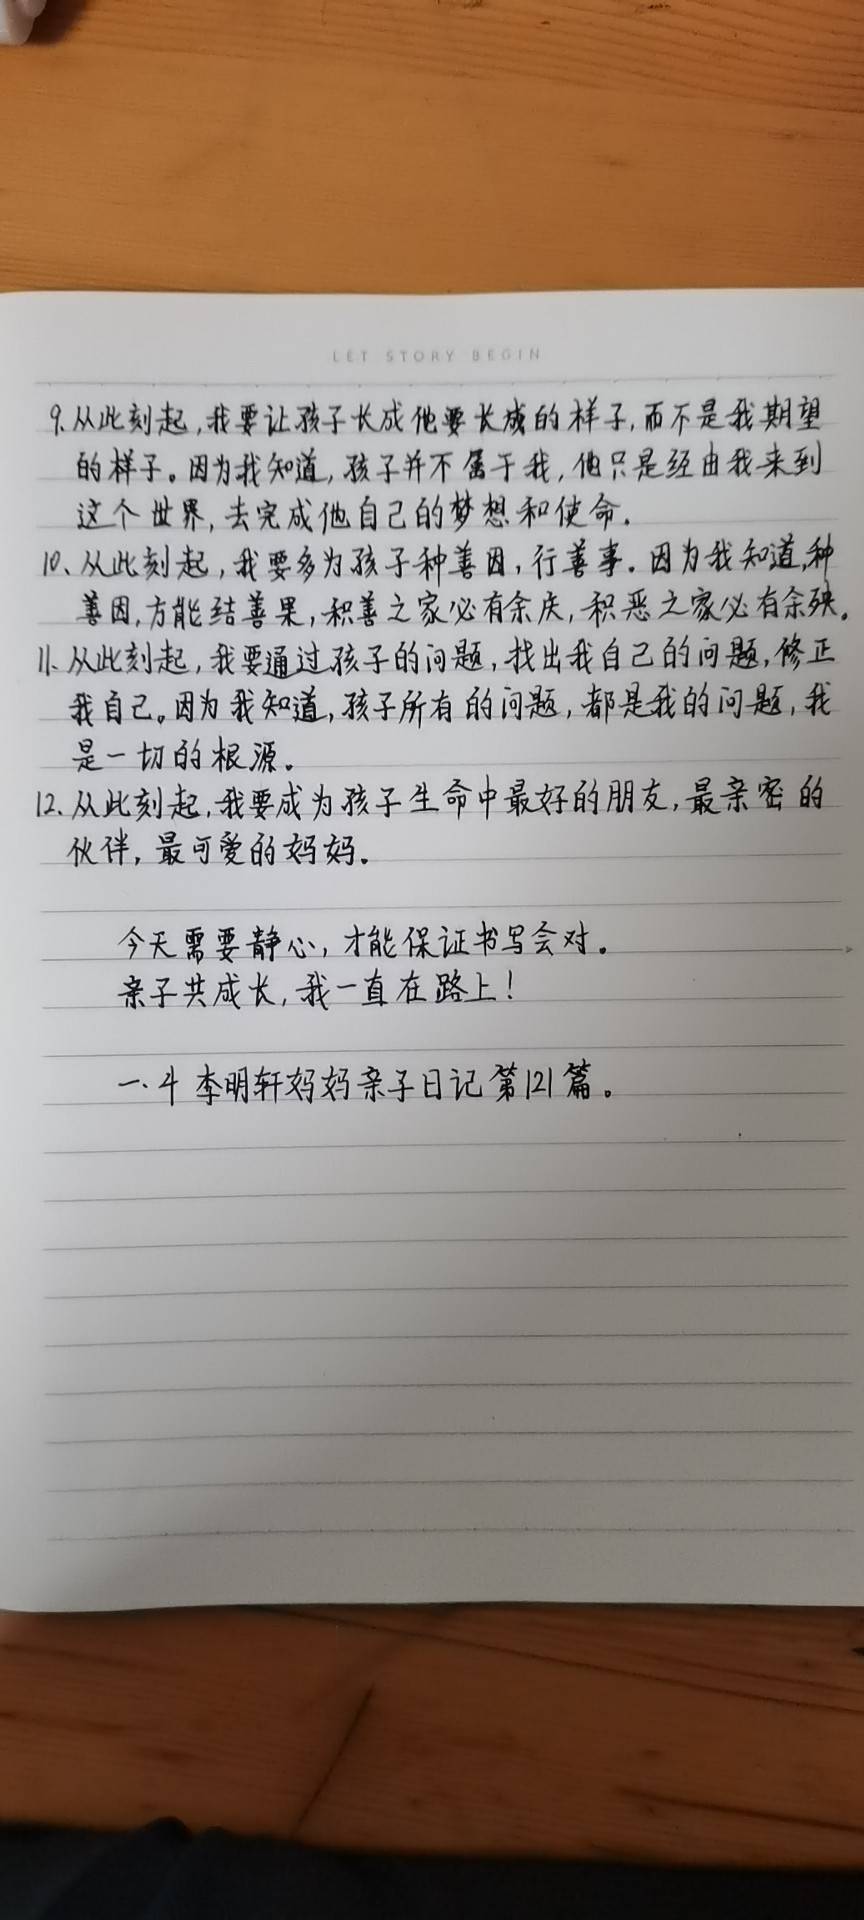 LET STORY BEGIN
9.从此刻起,我要让孩子长成他要长成的样子,而不是我期望
的样子。因为我知道,孩子并不属于我,他只是经由我来到
这个世界,去完成他自己的梦想和使命.
10、从此刻起,我要多为孩子种善因,行善事.因为我知道,种
善因,方能结善果,积善之家必有余庆,积恶之家必有余殃。
11、从此刻起,我要通过孩子的问题,找出我自己的问题,修正
我自己。因为我知道,孩子所有的问题,都是我的问题,我
是一切的根源。
12.从此刻起,我要成为孩子生命中最好的朋友,最亲密的
伙伴,最可爱的妈妈。
今天需要静心,才能保证书写会对。
亲子共成长,我一直在路上!
一.4 李明轩妈妈亲子日记第121篇。